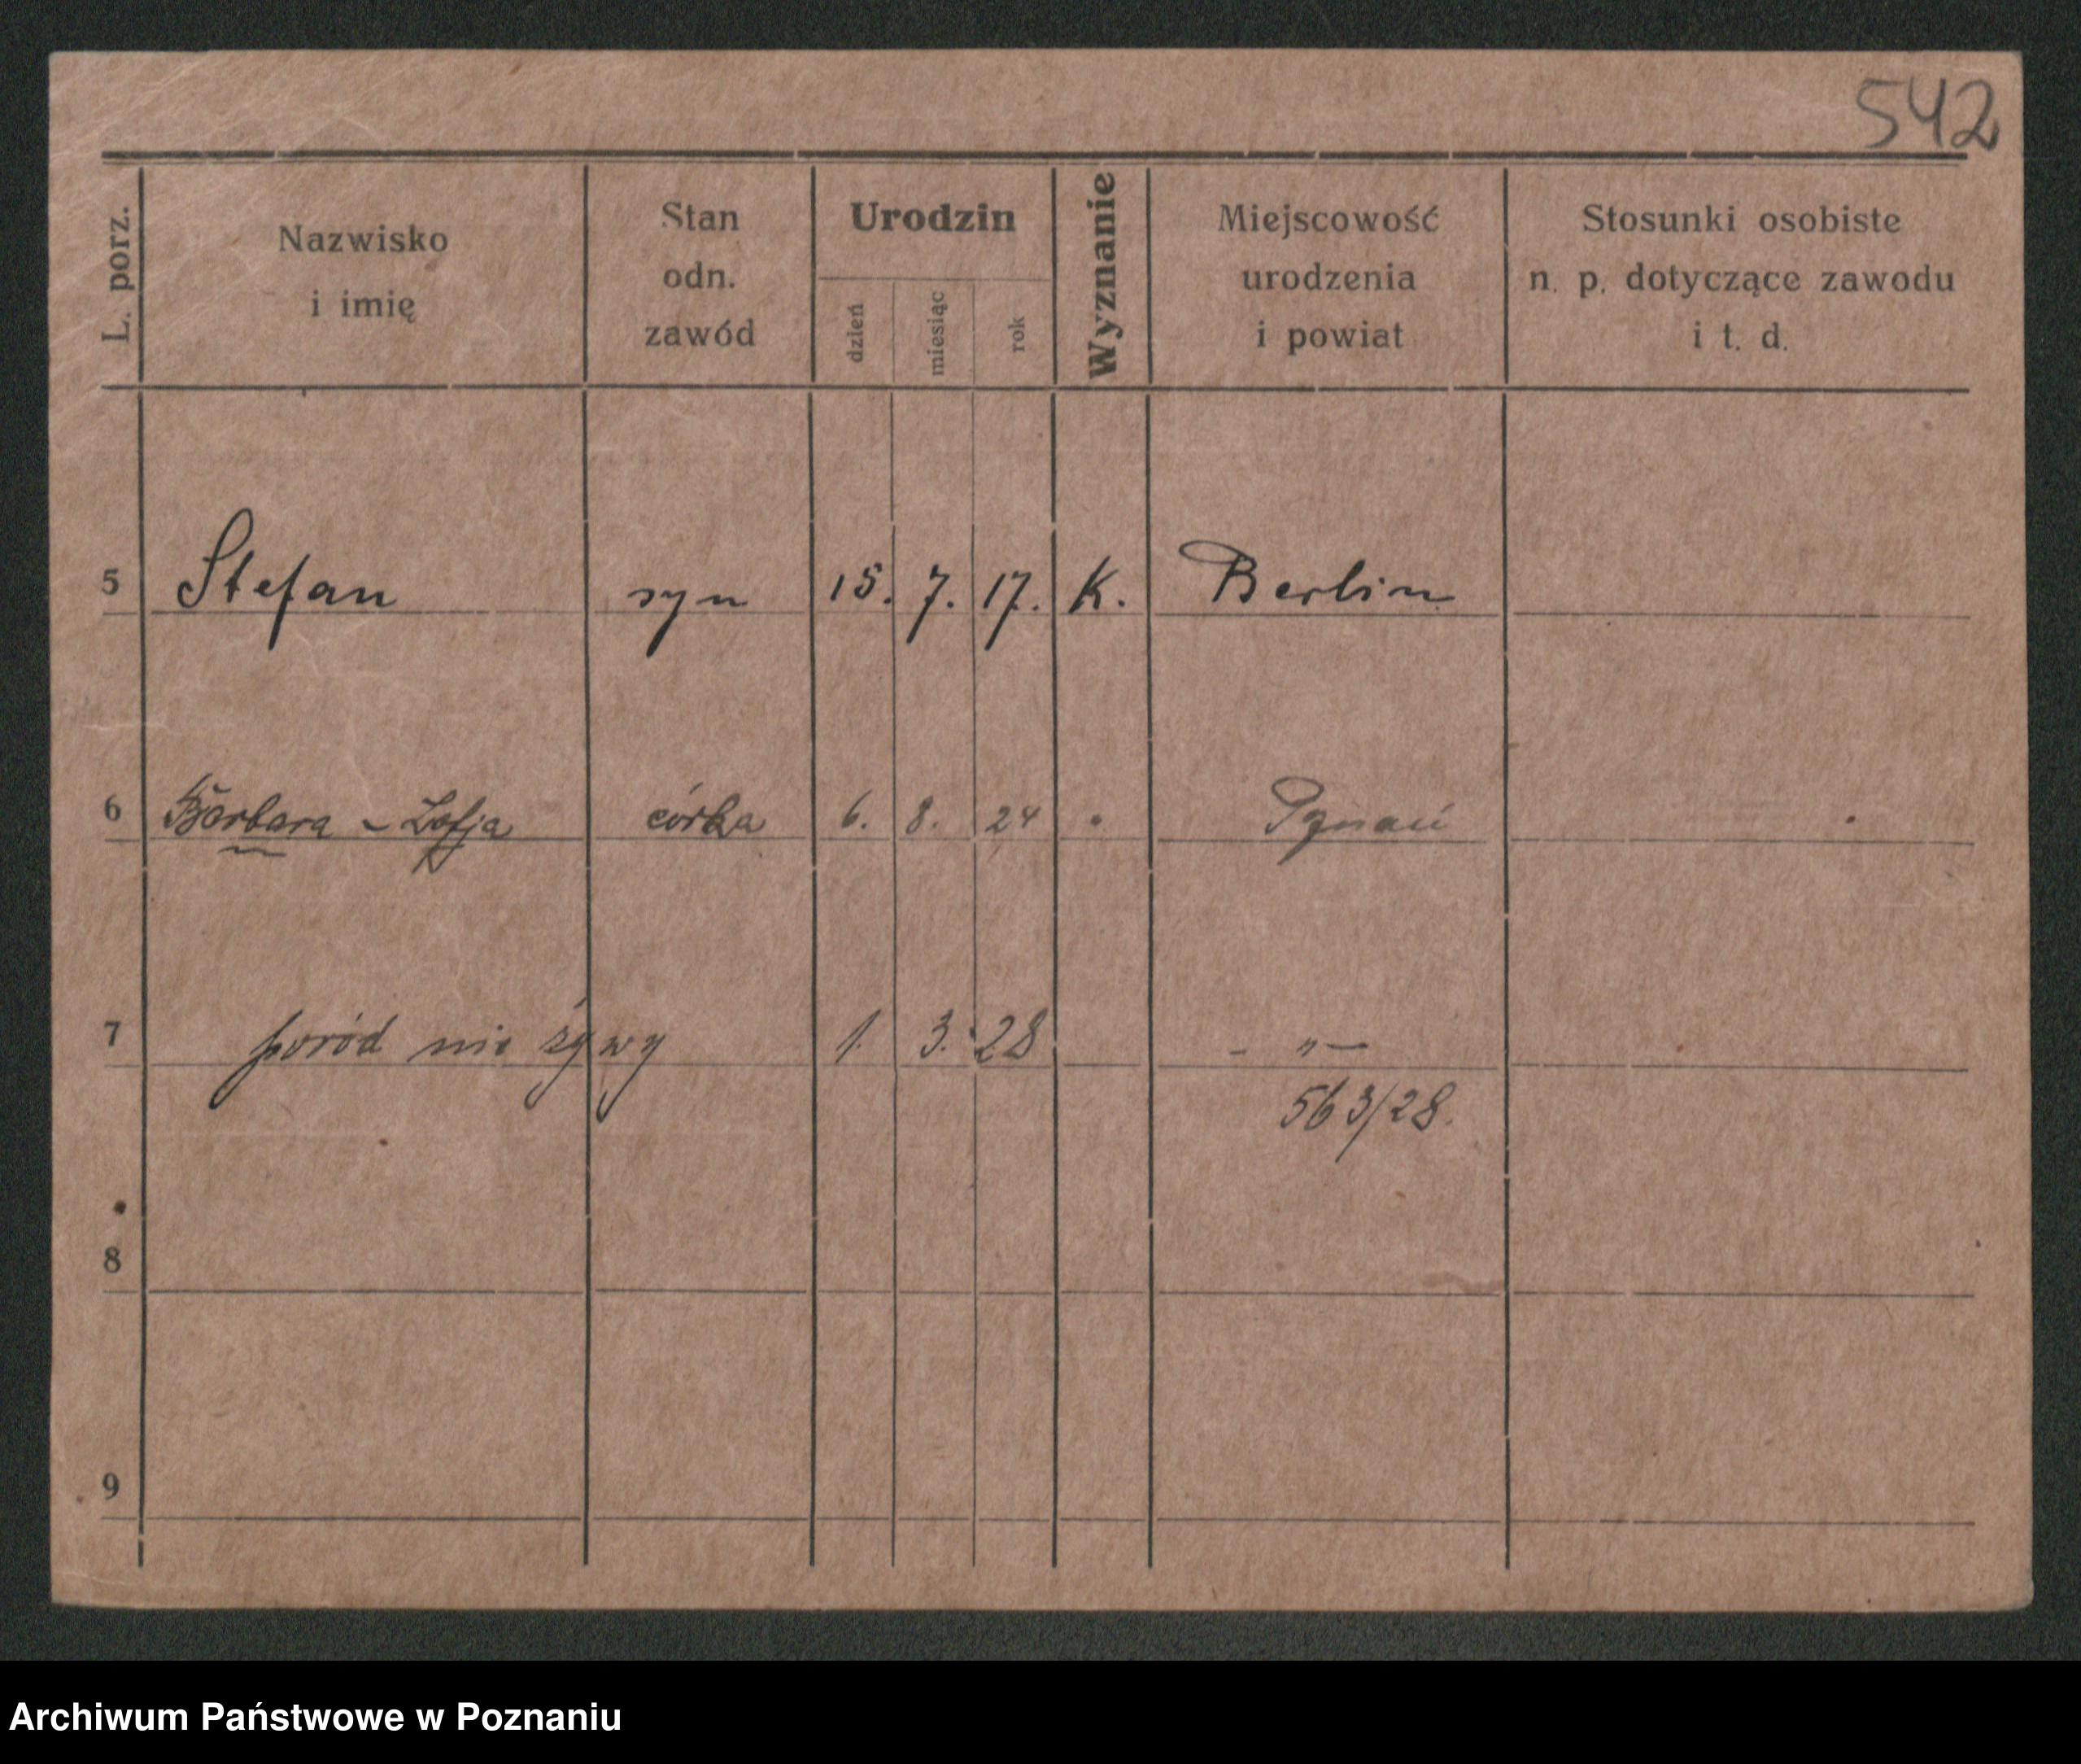 542
L. porz. Nazwisko i imię Stan odn. zawód Urodzin dzień miesiąc rok Wyznanie Miejscowość urodzenia i powiat Stosunki osobiste n. p. dotyczące zawodu i t. d.
5 Stefan syn 15. 7. 17. K. Berlin
6 Barbara - Zofja córka 6. 8. 24 " Poznań
7 poród nie żywy 1. 3. 28 - " -
563/28.
8
9
Archiwum Państwowe w Poznaniu